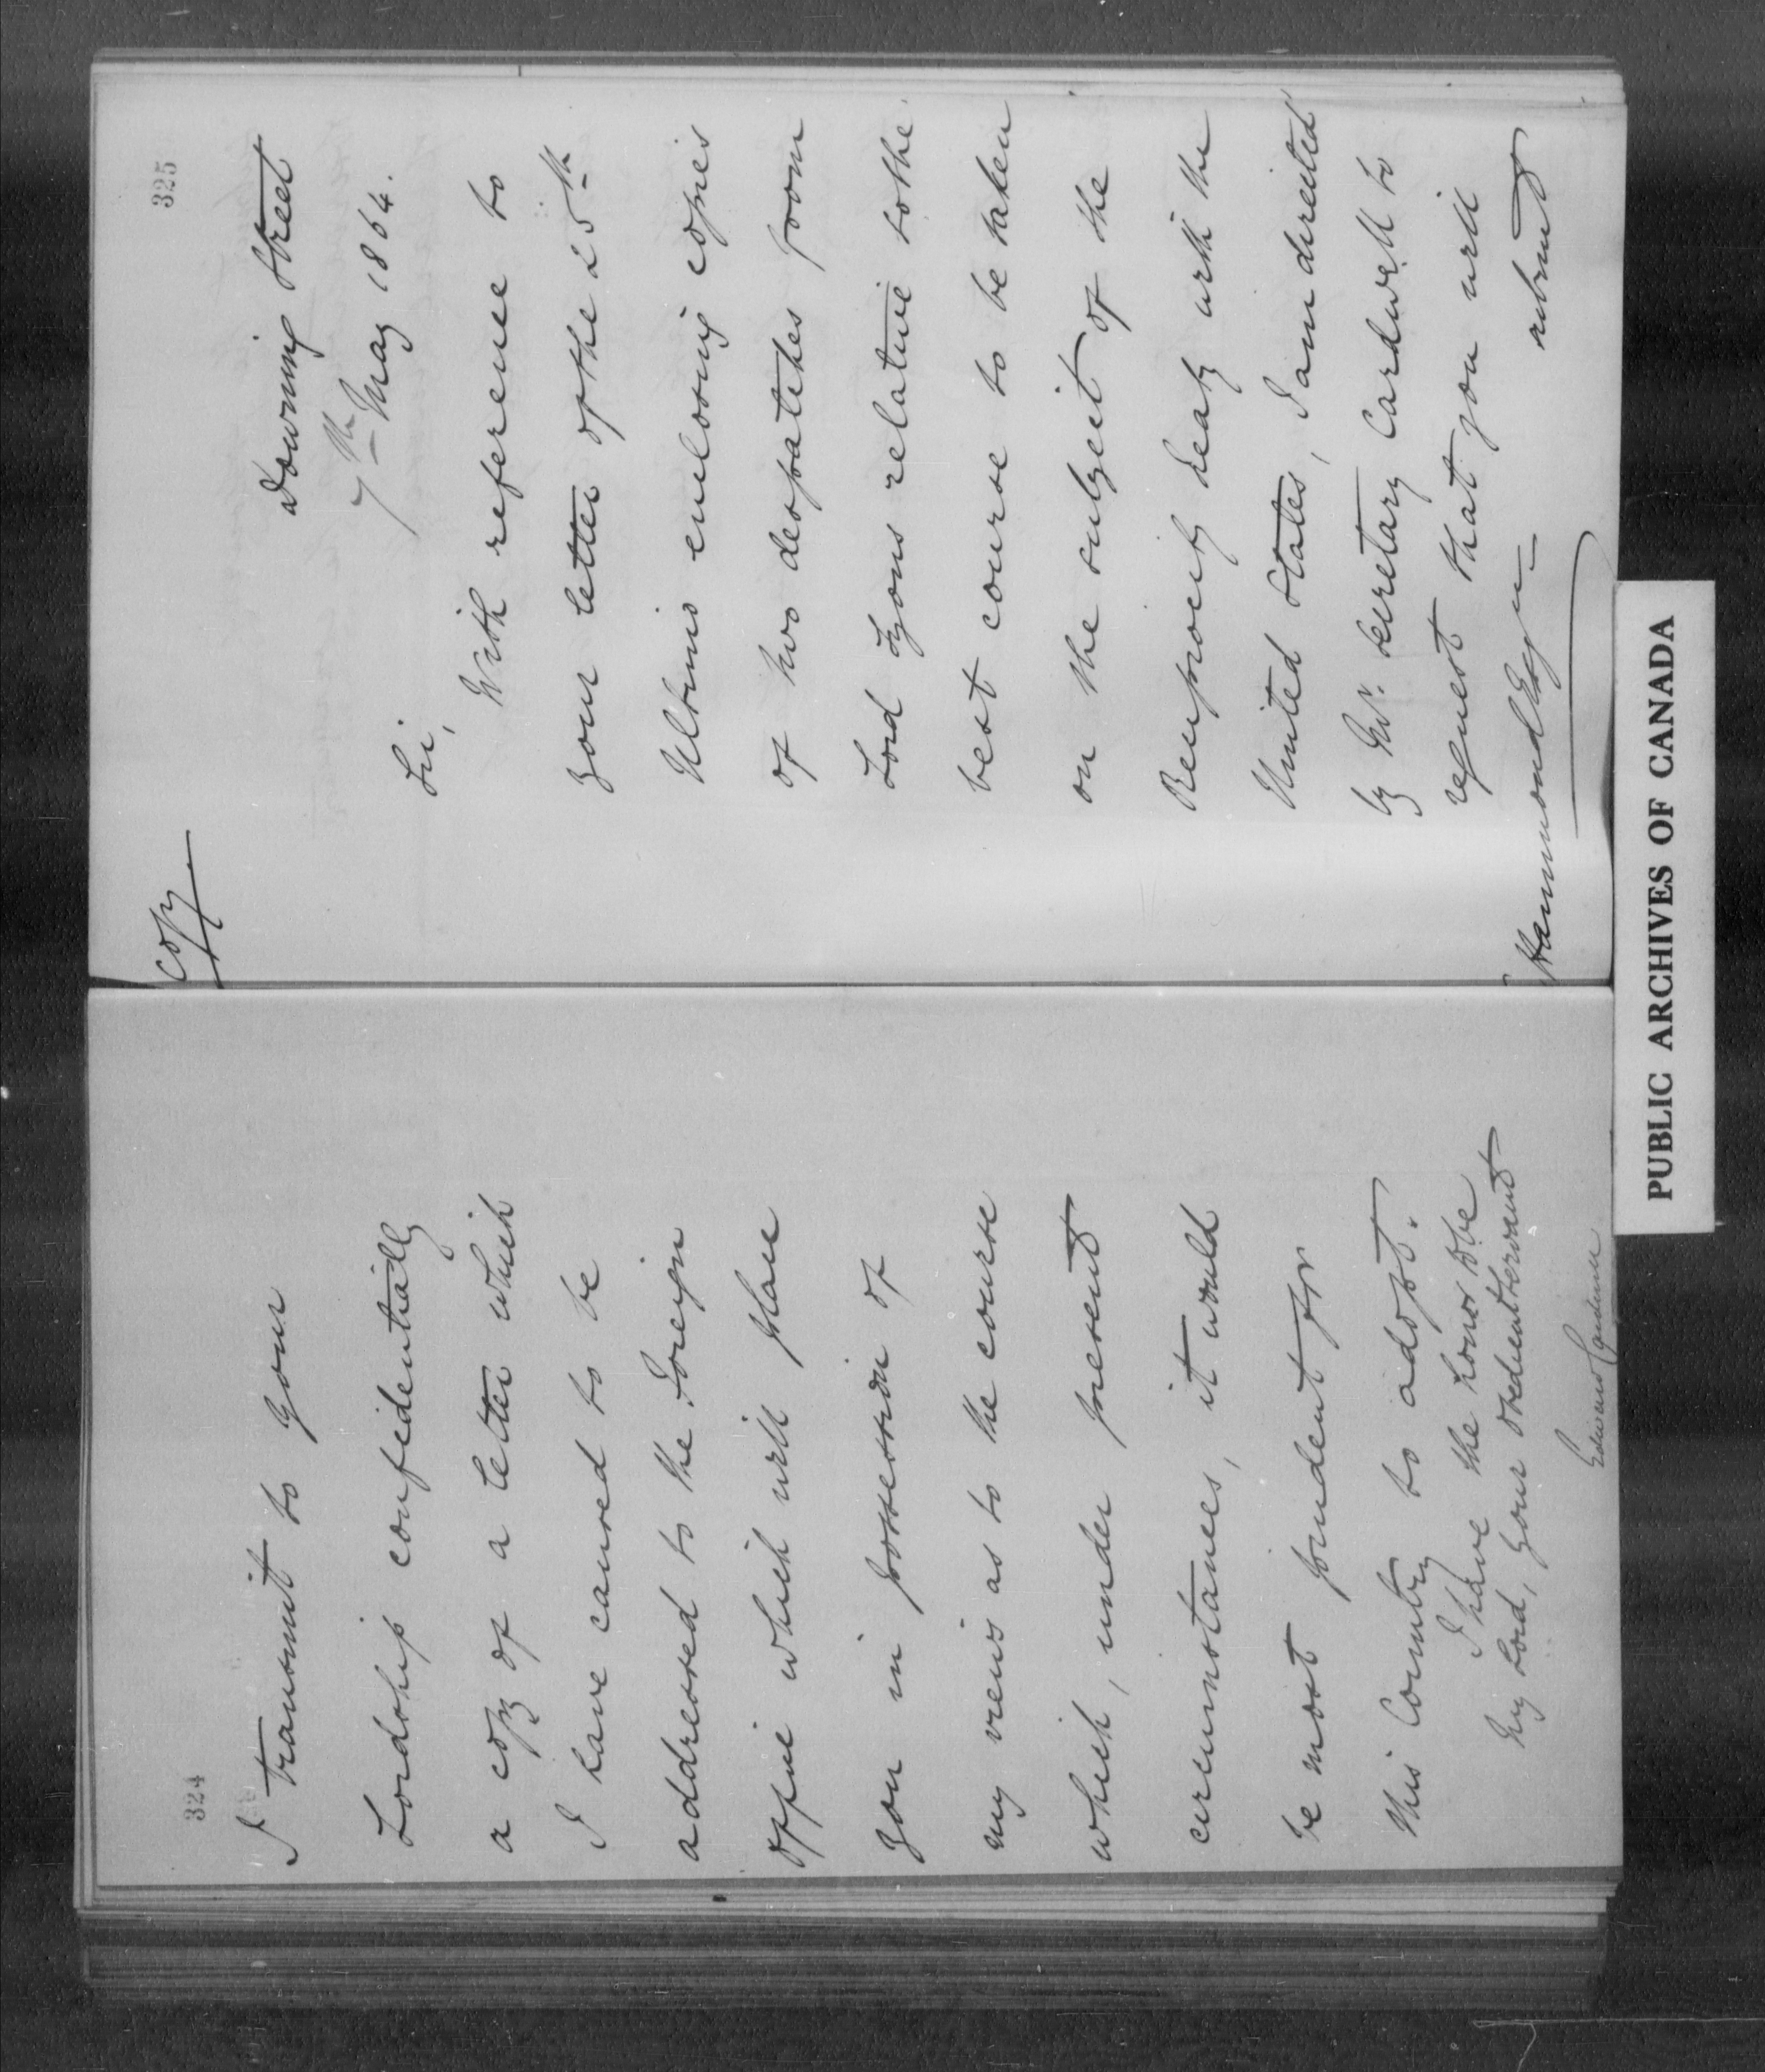 324
I transmit to your
Lordship confidentially
a copy of a letter which
I have caused to be
addressed to the Foreign
Office which will place
you in possession of
my views as to the course
which, under present
circumstances, it would
be most prudent for
this Country to adopt.
I have the honor to be
My Lord, Your Obedient Servant
Edward Cardwell
325
Copy
Downing Street
7th May 1864.
Sir,
With reference to
your letter of the 25th
Ultimo enclosing copies
of two despatches from
Lord Lyons relative to the
best course to be taken
on the subject of the
Reciprocity Treaty with the
United States, I am directed
by Mr. Secretary Cardwell to
request that you will
submit
Hammond Esqr.
PUBLIC ARCHIVES OF CANADA